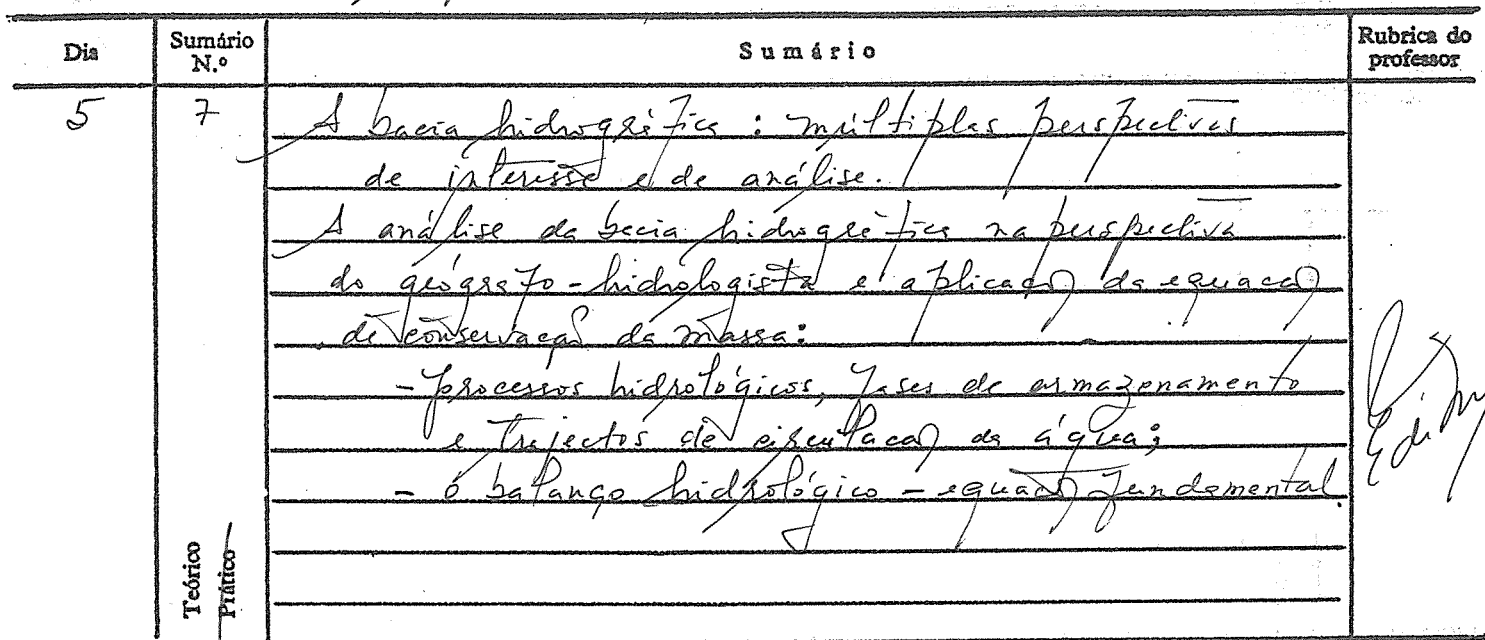 Dia Sumário N.º Sumário Rubrica do professor
5 7 A bacia hidrográfica: múltiplas perspectivas
de interesse e de análise.
A análise da bacia hidrográfica na perspectiva
do geógrafo-hidrologista e aplicação da equação
de conservação da massa:
- processos hidrológicos, fases de armazenamento
e trajectos de circulação da água;
- o balanço hidrológico - equação fundamental.
Teórico
Prático